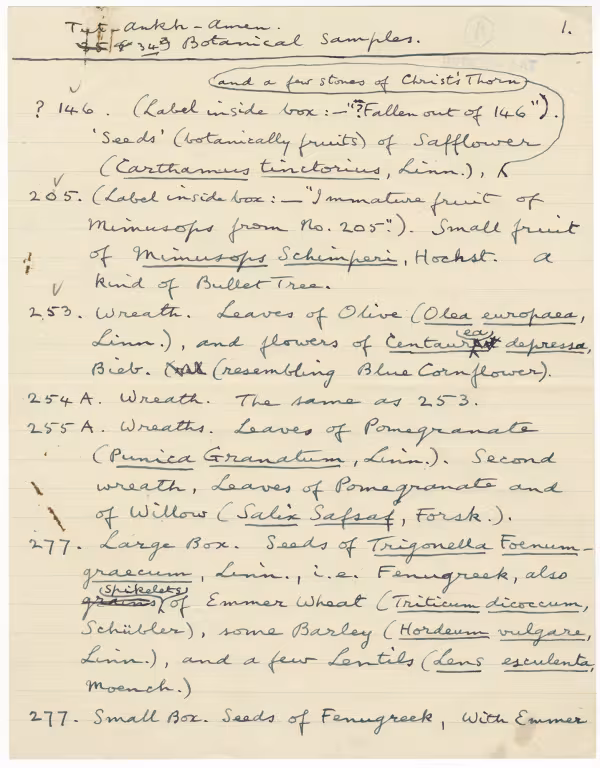 Tut-ankh-amen. 1.
Botanical Samples.
and a few stones of Christ's Thorn
? 146. (Label inside box :— "? Fallen out of 146").
'Seeds' (botanically fruits) of Safflower
(Carthamus tinctorius, Linn.),
205. (Label inside box :— "Immature fruit of
Mimusops from No. 205"). Small fruit
of Mimusops Schimperi, Hochst. A
kind of Bullet Tree.
253. Wreath. Leaves of Olive (Olea europaea,
Linn.), and flowers of Centaurea depressa,
Bieb. (resembling Blue Cornflower).
254 A. Wreath. The same as 253.
255 A. Wreaths. Leaves of Pomegranate
(Punica Granatum, Linn.). Second
wreath, Leaves of Pomegranate and
of Willow (Salix Safsaf, Forsk.).
277. Large Box. Seeds of Trigonella Foenum-
graecum, Linn., i.e. Fenugreek, also
grains spikelets of Emmer Wheat (Triticum dicoccum,
Schübler), some Barley (Hordeum vulgare,
Linn.), and a few Lentils (Lens esculenta,
Moench.)
277. Small Box. Seeds of Fenugreek, With Emmer